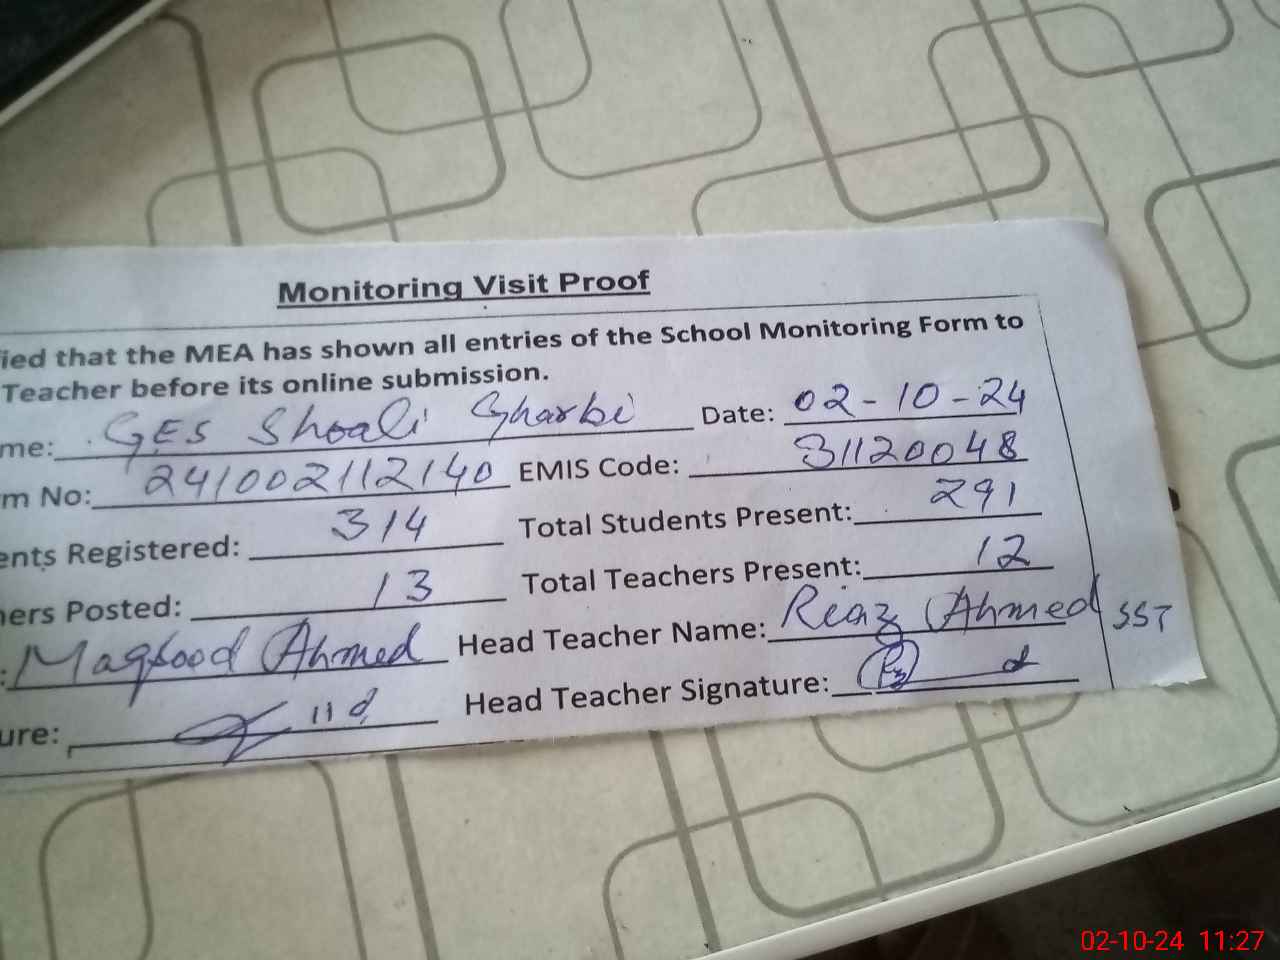 Monitoring Visit Proof
ied that the MEA has shown all entries of the School Monitoring Form to
Teacher before its online submission.
me: GES Shoali Gharbi Date: 02-10-24
m No: 241002112140 EMIS Code: 31120048
ents Registered: 314 Total Students Present: 291
ers Posted: 13 Total Teachers Present: 12
: Maqsood Ahmed Head Teacher Name: Riaz Ahmed SST
ure: Head Teacher Signature:
02-10-24 11:27